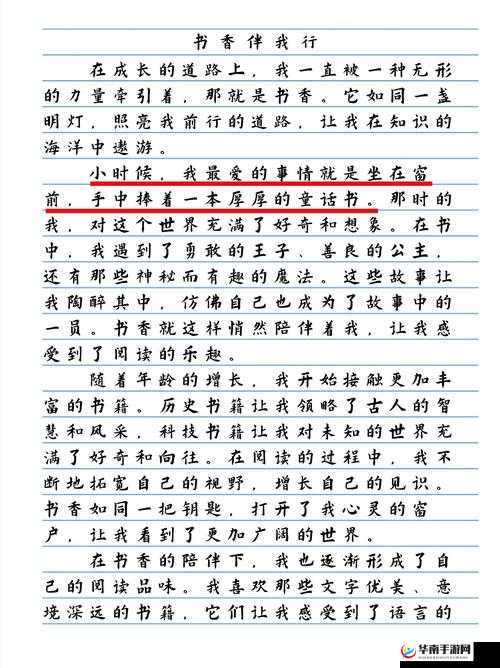 书香伴我行
在成长的道路上，我一直被一种无形
的力量牵引着，那就是书香。它如同一盏
明灯，照亮我前行的道路，让我在知识的
海洋中遨游。
小时候，我最爱的事情就是坐在窗
前，手中捧着一本厚厚的童话书。那时的
我，对这个世界充满了好奇和想象。在书
中，我遇到了勇敢的王子、善良的公主，
还有那些神秘而有趣的魔法。这些故事让
我陶醉其中，仿佛自己也成为了故事中的
一员。书香就这样悄然陪伴着我，让我感
受到了阅读的乐趣。
随着年龄的增长，我开始接触更加丰
富的书籍。历史书籍让我领略了古人的智
慧和风采，科技书籍让我对未知的世界充
满了好奇和向往。在阅读的过程中，我不
断地拓宽自己的视野，增长自己的见识。
书香如同一把钥匙，打开了我心灵的窗
户，让我看到了更加广阔的世界。
在书香的陪伴下，我也逐渐形成了自
己的阅读品味。我喜欢那些文字优美、意
境深远的书籍，它们让我感受到了语言的
华南手游网